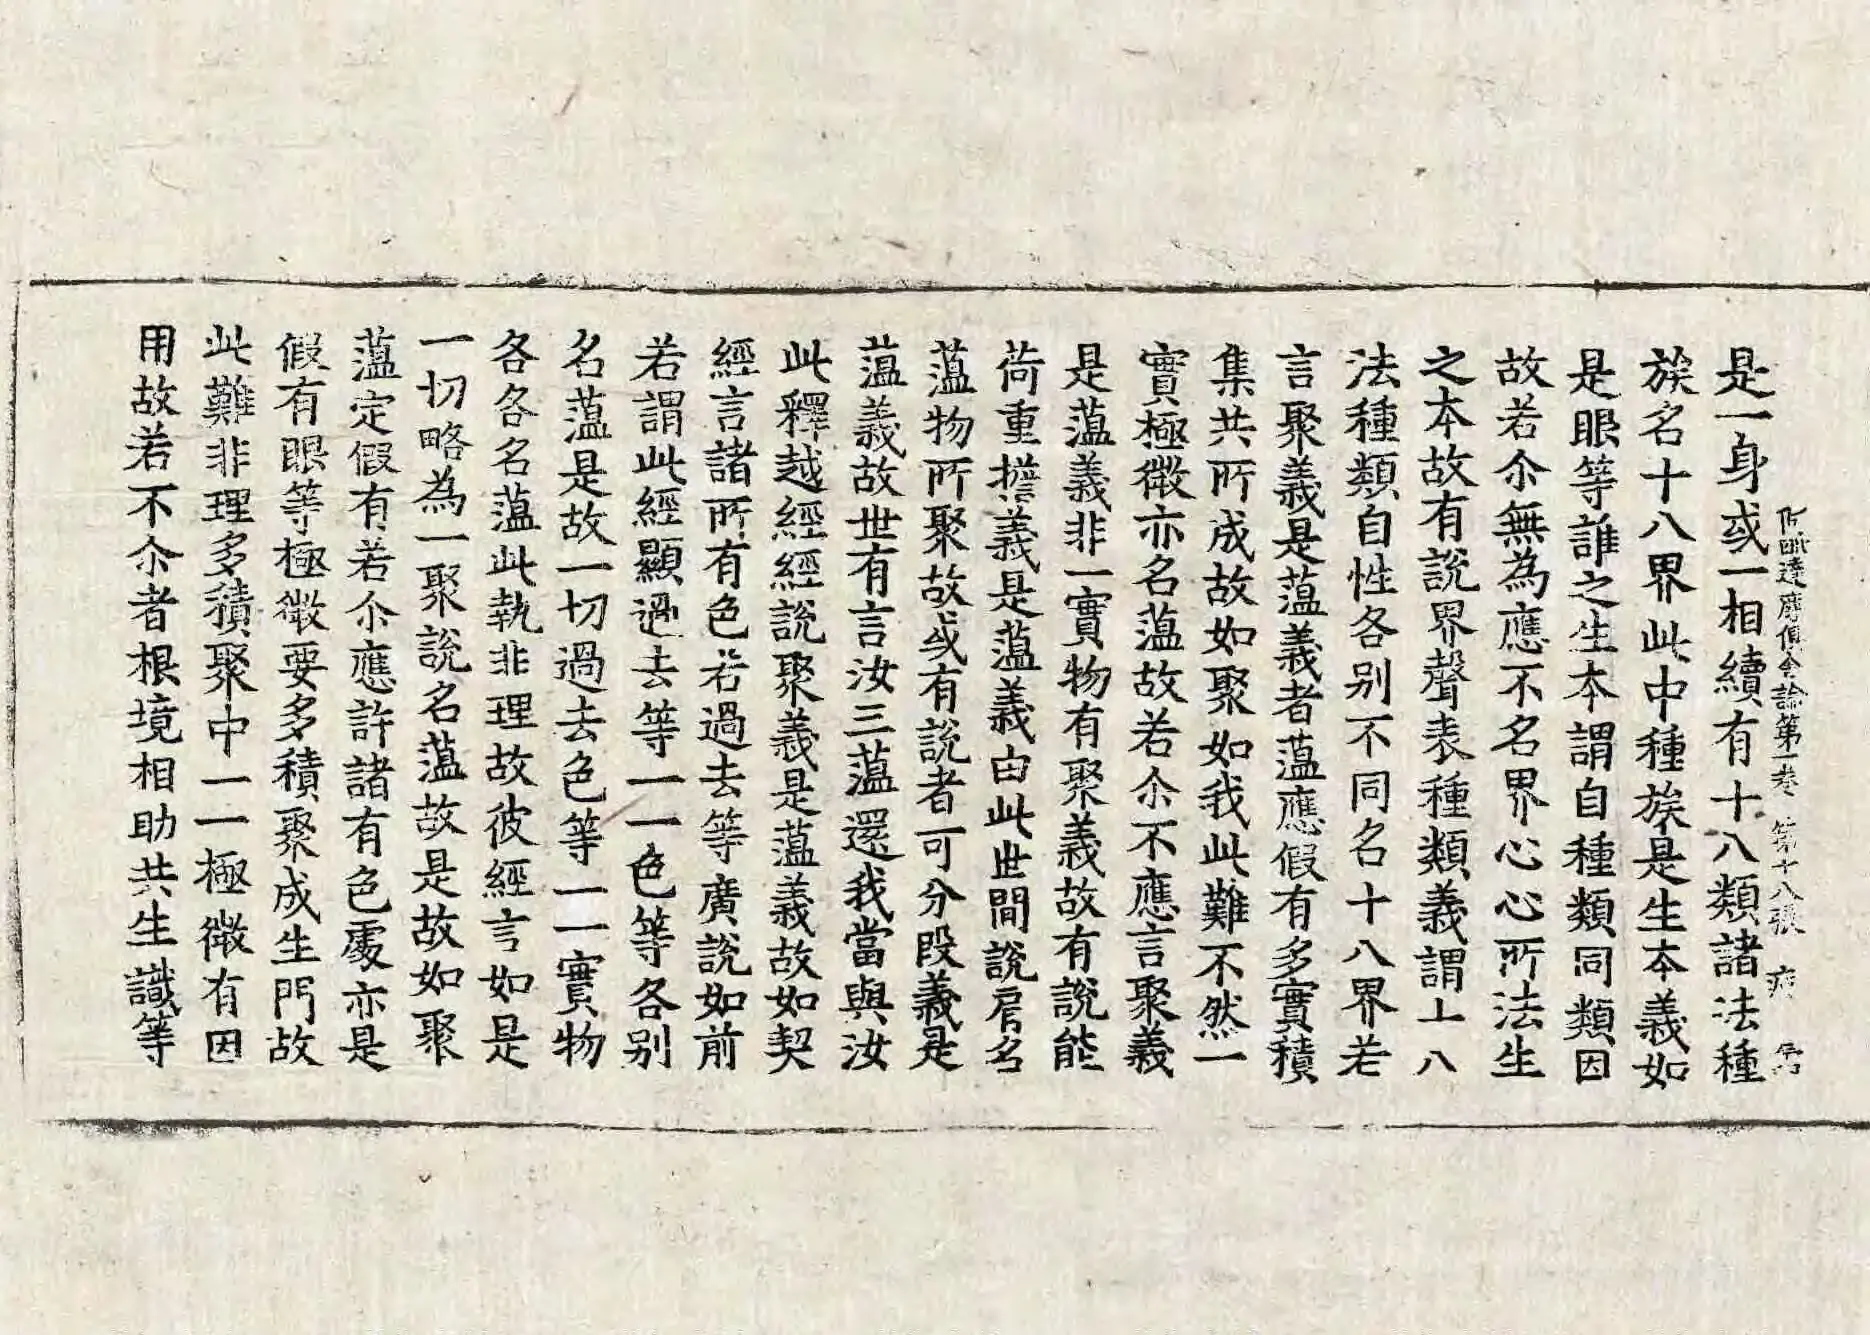 阿毗達磨俱舍論第一卷 第十八張
是一身或一相續有十八類諸法種
族名十八界此中種族是生本義如
是眼等誰之生本謂自種類同類因
故若尒無為應不名界心心所法生
之本故有說界聲表種類義謂十八
法種類自性各別不同名十八界若
言聚義是藴義者藴應假有多實積
集共所成故如聚如我此難不然一
實極微亦名藴故若尒不應言聚義
是藴義非一實物有聚義故有說能
荷重擔義是藴義由此世間說肩名
藴物所聚故或有說者可分段義是
藴義故世有言汝三藴還我當與汝
此釋越經經說聚義是藴義故如契
經言諸所有色若過去等廣說如前
若謂此經顯過去等一一色等各別
名藴是故一切過去色等一一實物
各各名藴此執非理故彼經言如是
一切略為一聚說名藴故是故如聚
藴定假有若尒應許諸有色處亦是
假有眼等極微要多積聚成生門故
此難非理多積聚中一一極微有因
用故若不尒者根境相助共生識等